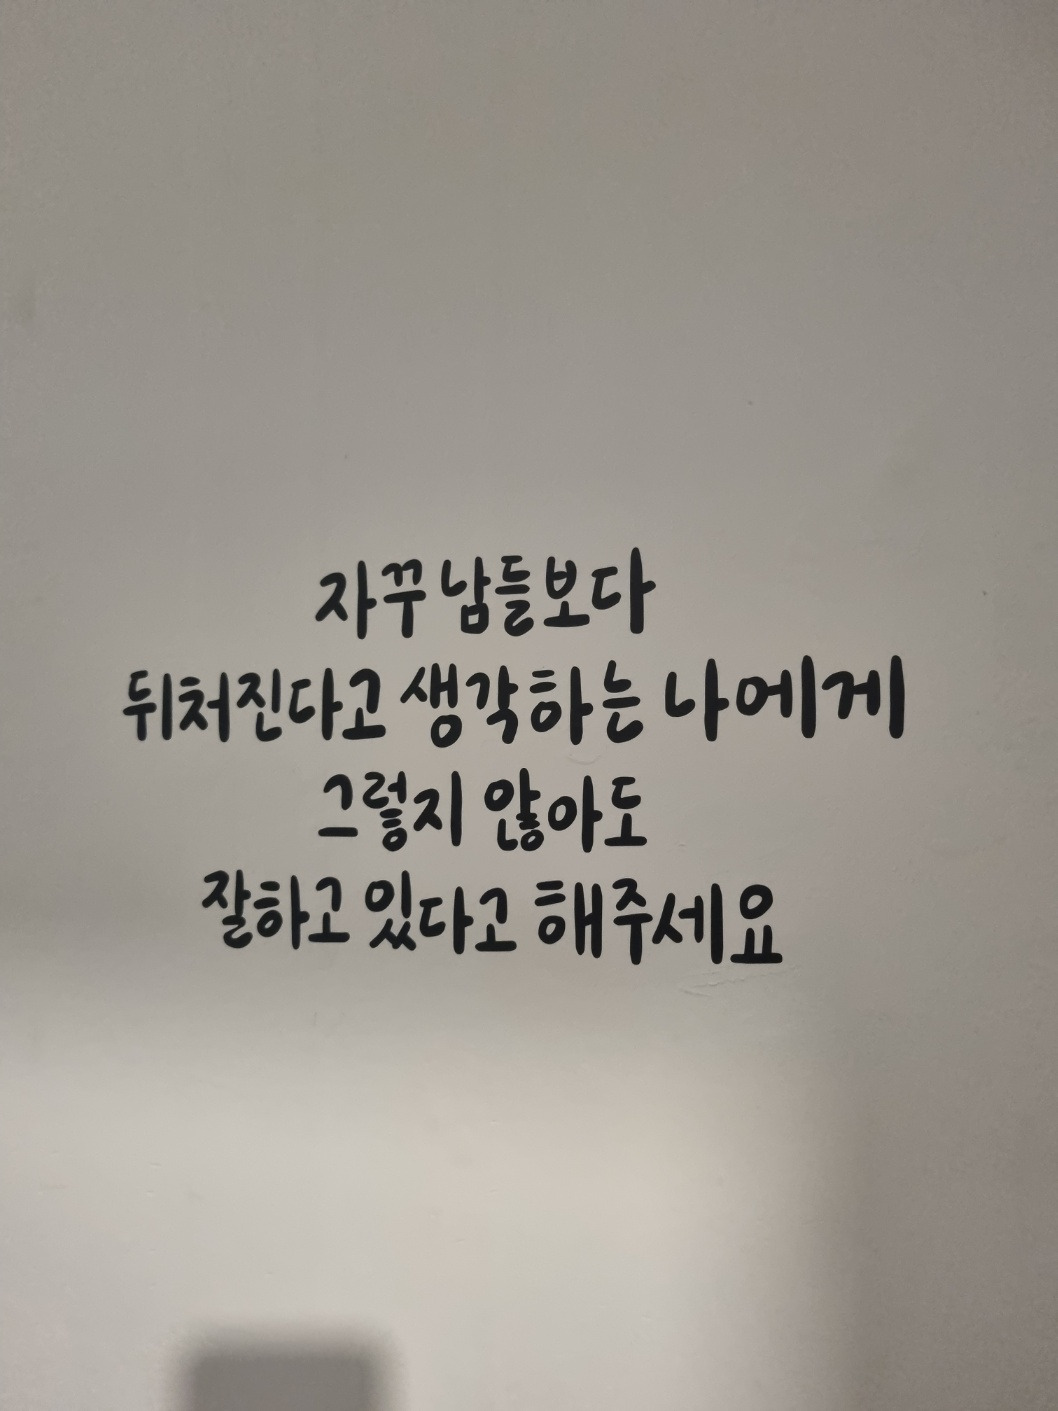 자꾸 남들보다
뒤처진다고 생각하는 나에게
그렇지 않아도
잘하고 있다고 해주세요